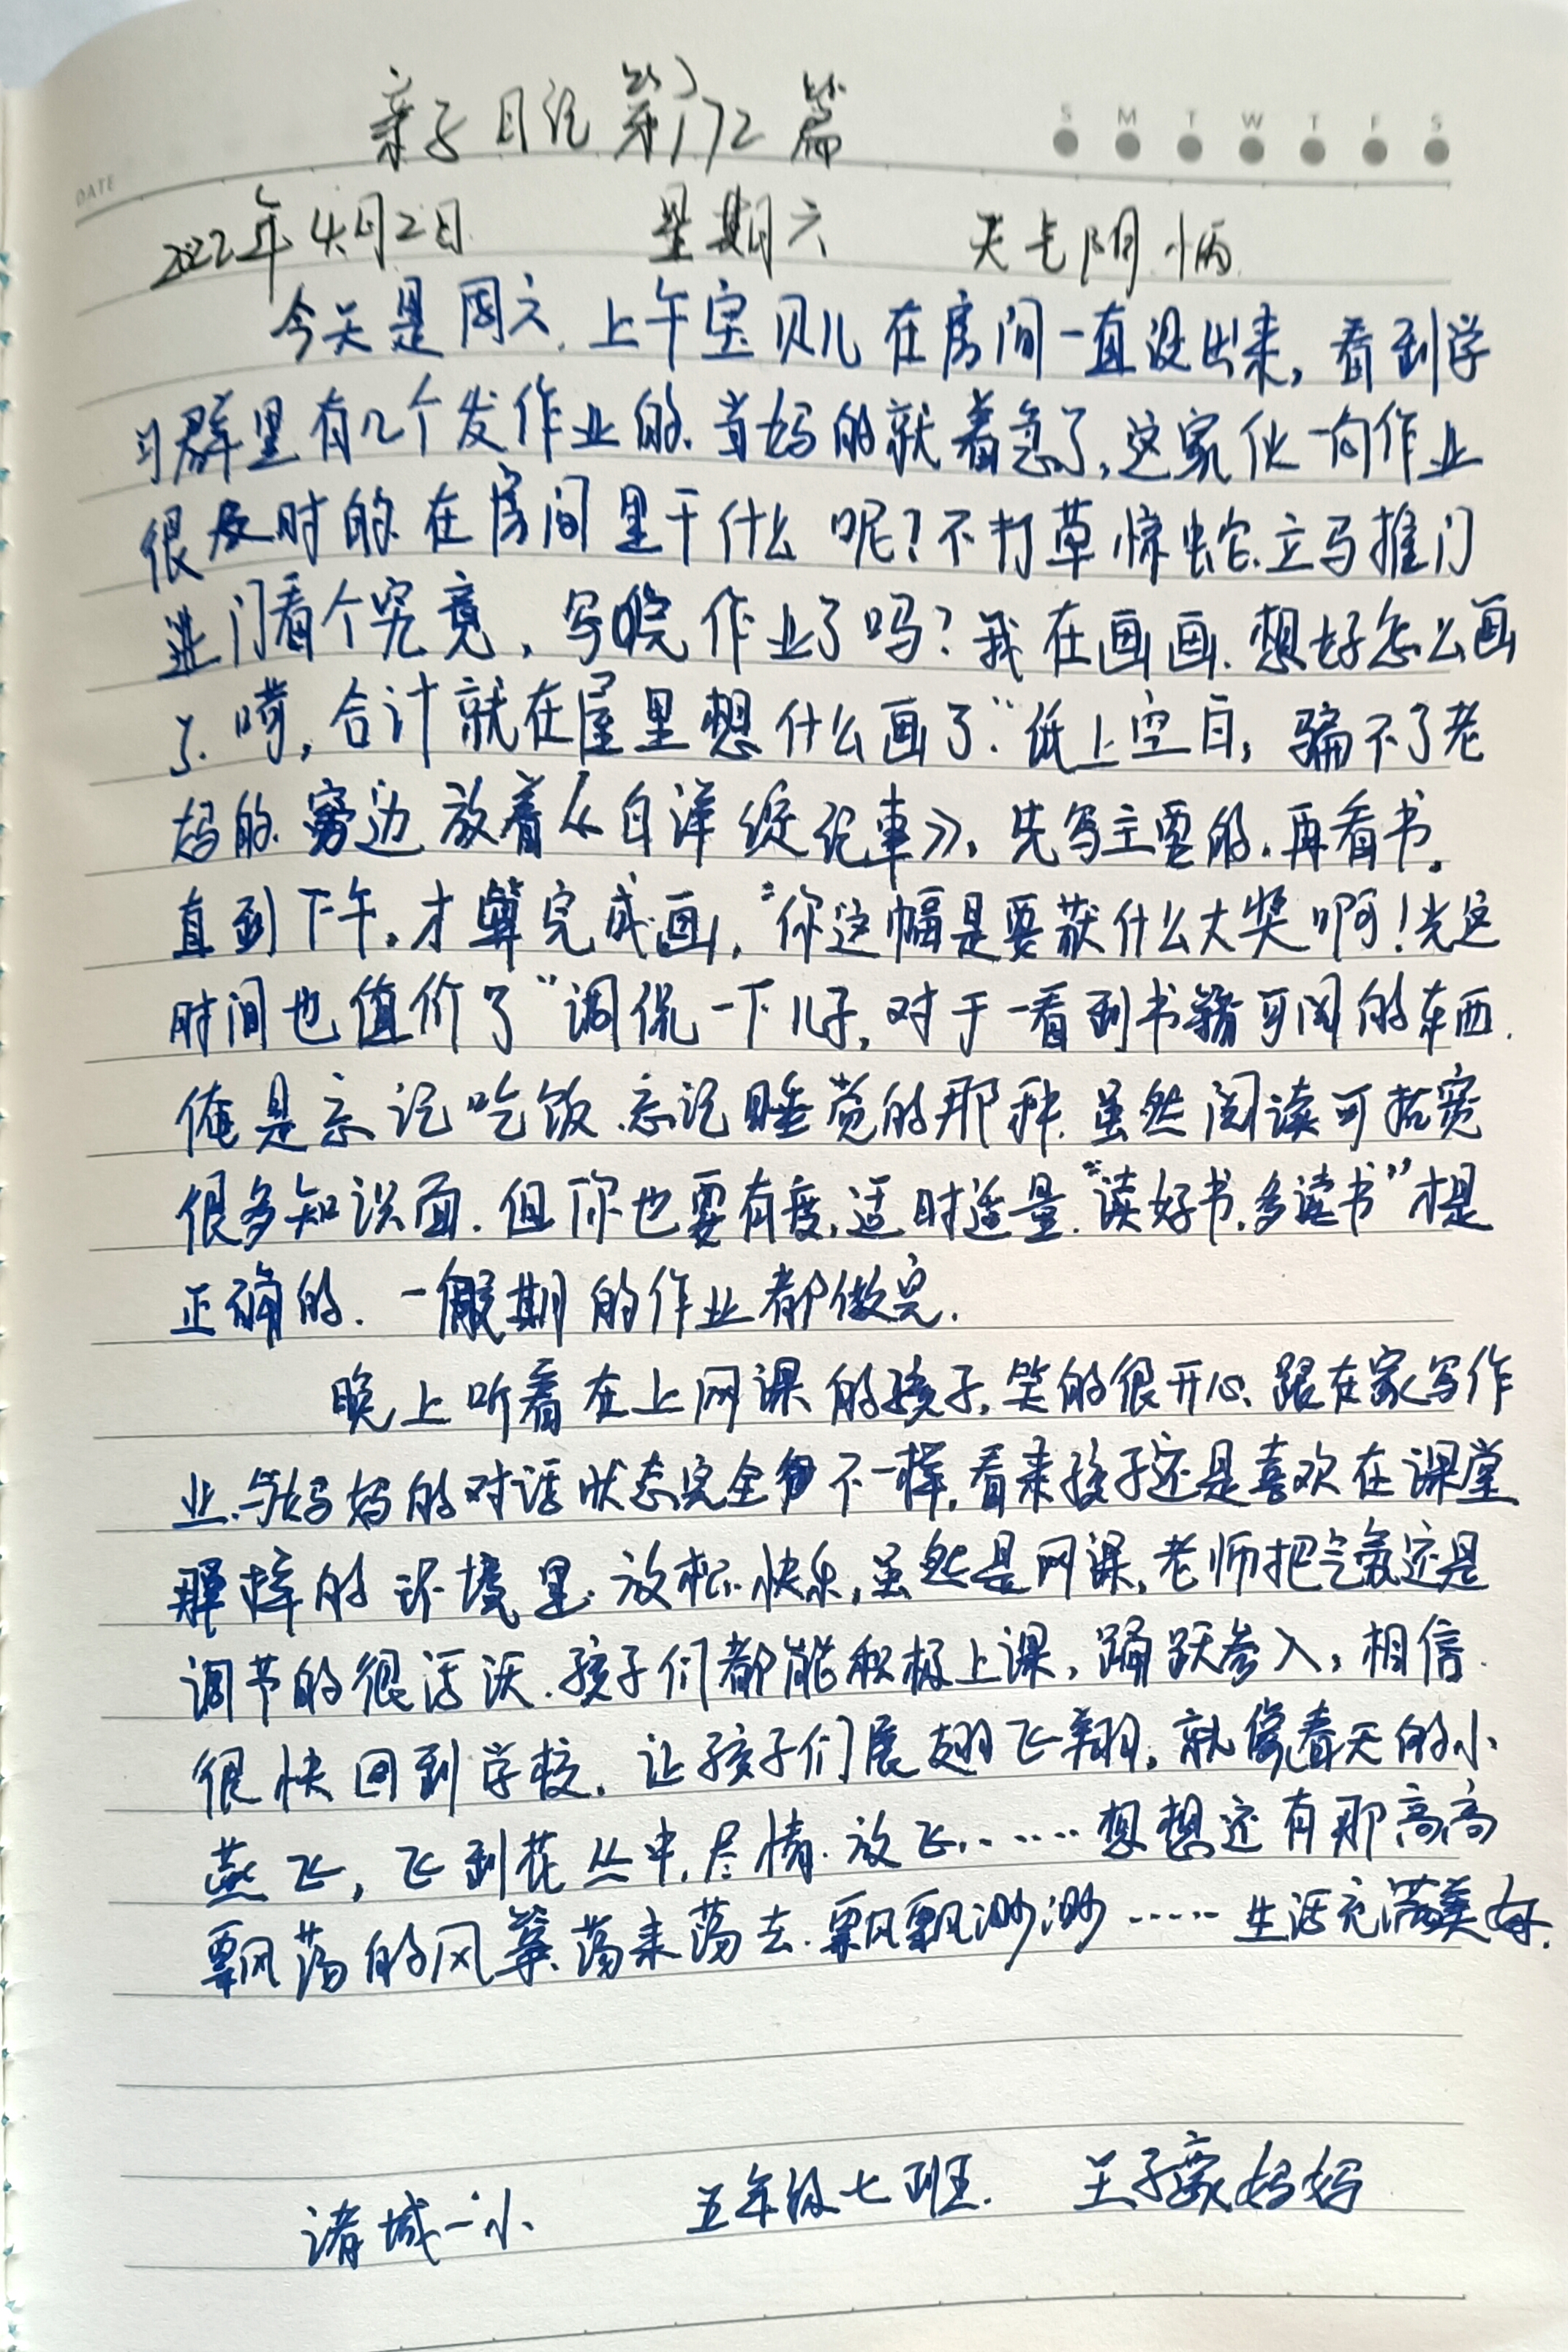 亲子日记第172篇
S M T W T F S
DATE
2022年4月2日 星期六 天气阴
今天是周六.上午宝贝儿在房间一直没出来,看到学
习群里有几个发作业的.当妈的就着急了,这家伙一向作业
很及时的.在房间里干什么呢?不打草惊蛇.立马推门
进门看个究竟,写完作业了吗?我在画画.想好怎么画
了.嗬,合计就在屋里想什么画了"纸上空白,骗不了老
妈的.旁边放着《白洋淀纪事》,先写主要的.再看书.
直到下午.才算完成画,"你这幅是要获什么大奖啊!光这
时间也值价了"调侃一下儿子,对于一看到书籍可阅的东西.
俺是忘记吃饭.忘记睡觉的那种.虽然阅读可拓宽
很多知识面.但你也要有度,适时适量."读好书.多读书"才是
正确的.一假期的作业都做完.
晚上听着在上网课的孩子,笑的很开心.跟在家写作
业.与妈妈的对话状态完全不一样,看来孩子还是喜欢在课堂
那样的环境里.放松.快乐,虽然是网课,老师把气氛还是
调节的很活跃.孩子们都能积极上课,踊跃参入,相信.
很快回到学校.让孩子们展翅飞翔,就像春天的小
燕飞,飞到花丛中.尽情.放飞……想想还有那高高
飘荡的风筝.荡来荡去.飘飘渺渺……生活充满美好.
诸城一小 五年级七班. 王子豪妈妈